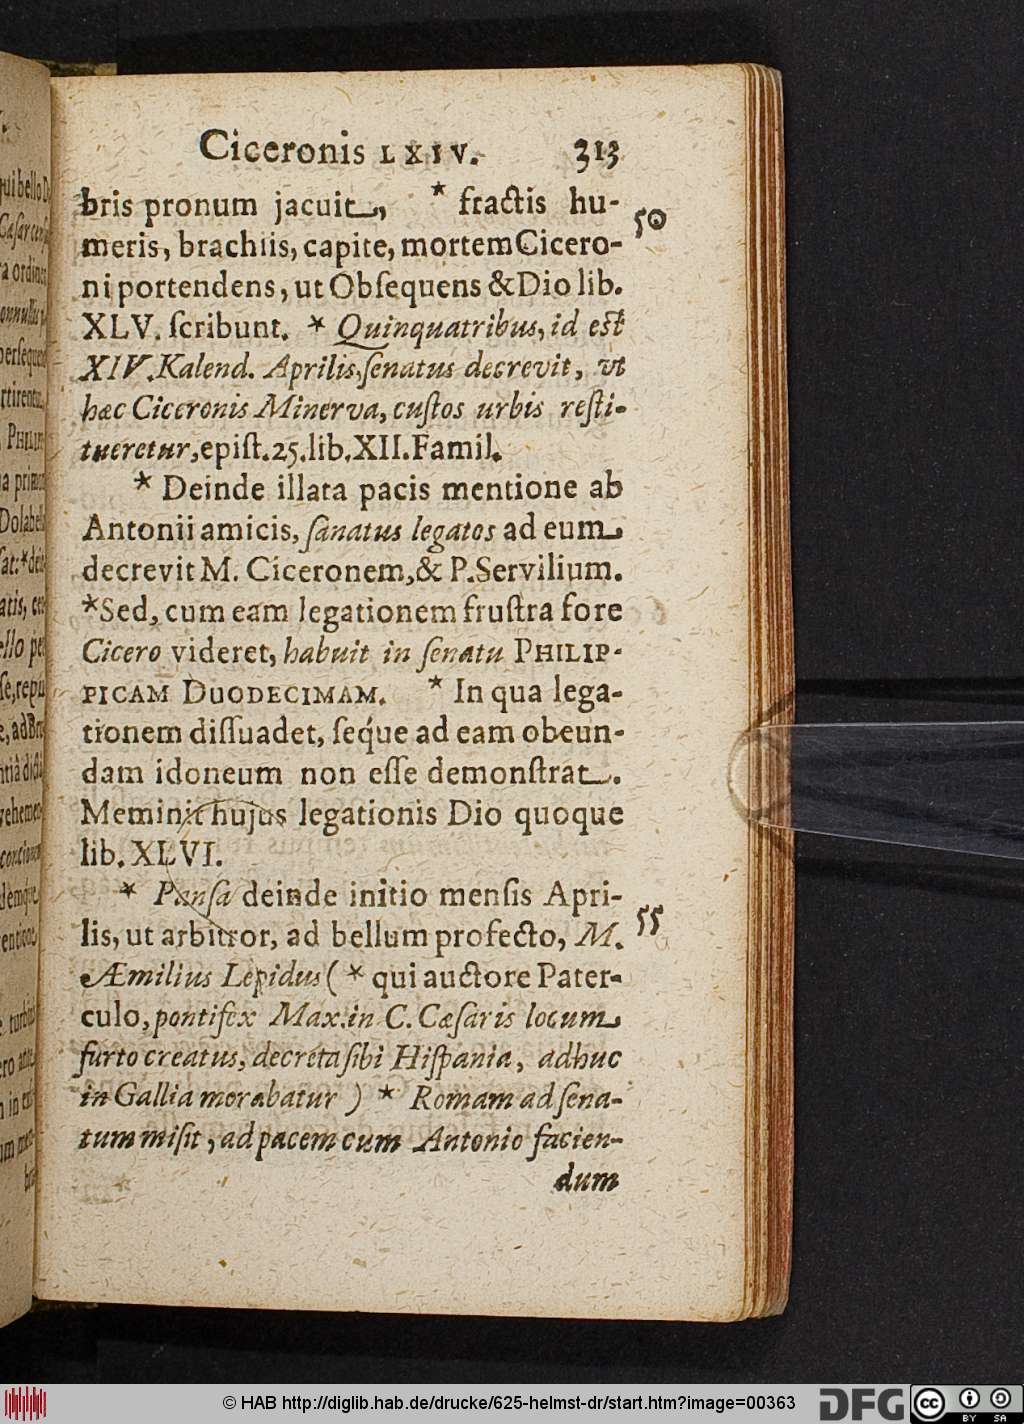 Ciceronis LXIV. 313
bris pronum jacuit, * fractis hu-
50
meris, brachiis, capite, mortem Cicero-
ni portendens, ut Obſequens & Dio lib.
XLV. ſcribunt. * Quinquatribus, id eſt
XIV. Kalend. Aprilis, ſenatus decrevit, ut
hæc Ciceronis Minerva, cuſtos urbis reſti-
tueretur, epiſt. 25. lib. XII. Famil.
* Deinde illata pacis mentione ab
Antonii amicis, ſanatus legatos ad eum
decrevit M. Ciceronem, & P. Servilium.
*Sed, cum eam legationem fruſtra fore
Cicero videret, habuit in ſenatu PHILIP-
PICAM DUODECIMAM. * In qua lega-
tionem diſſuadet, ſeq́ue ad eam obeun-
dam idoneum non eſſe demonſtrat.
Meminit hujus legationis Dio quoque
lib. XLVI.
* Panſa deinde initio menſis Apri-
lis, ut arbitror, ad bellum profecto, M.
55
Æmilius Lepidus ( * qui auctore Pater-
culo, pontifex Max. in C. Cæſaris locum
furto creatus, decreta ſibi Hiſpania, adhuc
in Gallia morabatur ) * Romam ad ſena-
tum miſit, ad pacem cum Antonio facien-
dum
© HAB http://diglib.hab.de/drucke/625-helmst-dr/start.htm?image=00363
DFG
cc
BY SA